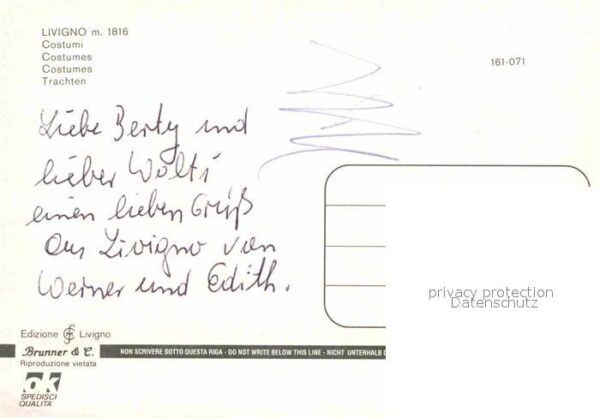 LIVIGNO m. 1816
Costumi
Costumes
Costumes
Trachten
161-071
Liebe Berty und
lieber Wolti
einen lieben Gruß
aus Livigno von
Werner und Edith.
privacy protection
Datenschutz
Edizione Livigno
Brunner & C.
Riproduzione vietata
NON SCRIVERE SOTTO QUESTA RIGA - DO NOT WRITE BELOW THIS LINE - NICHT UNTERHALB
ok
SPEDISCI
QUALITÀ